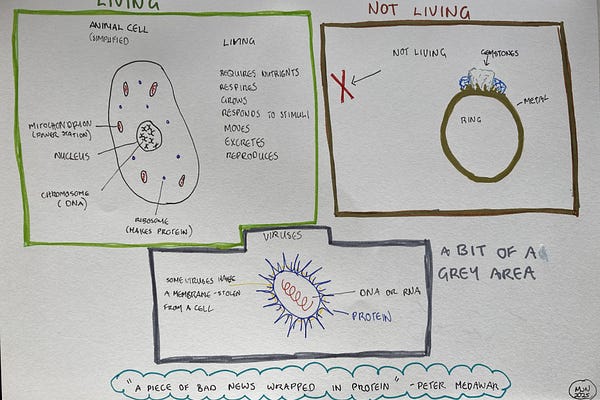 LIVING
ANIMAL CELL
(SIMPLIFIED)
MITOCHONDRION
(POWER STATION)
NUCLEUS
CHROMOSOME
(DNA)
RIBOSOME
(MAKES PROTEIN)
LIVING
REQUIRES NUTRIENTS
RESPIRES
GROWS
RESPONDS TO STIMULI
MOVES
EXCRETES
REPRODUCES
NOT LIVING
NOT LIVING
X
GEMSTONES
METAL
RING
VIRUSES
SOME VIRUSES HAVE
A MEMBRANE - STOLEN
FROM A CELL
DNA OR RNA
PROTEIN
A BIT OF A
GREY AREA
"A PIECE OF BAD NEWS WRAPPED IN PROTEIN" - PETER MEDAWAR
MJN
2025